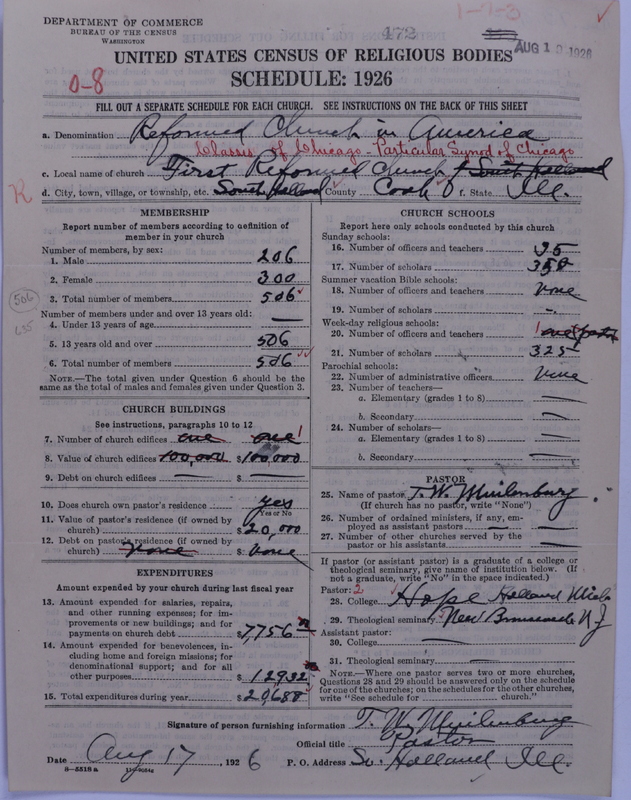 DEPARTMENT OF COMMERCE
BUREAU OF THE CENSUS
WASHINGTON
172
1-7-3
AUG 1 1926
UNITED STATES CENSUS OF RELIGIOUS BODIES
0-8
SCHEDULE: 1926
FILL OUT A SEPARATE SCHEDULE FOR EACH CHURCH. SEE INSTRUCTIONS ON THE BACK OF THIS SHEET
a. Denomination Reformed Church in America
Classis of Chicago - Particular Synod of Chicago
c. Local name of church First Reformed Church of South Holland
d. City, town, village, or township, etc. South Holland County Cook f. State Ill.
R
MEMBERSHIP
Report number of members according to definition of member in your church
Number of members, by sex:
1. Male 206
2. Female 300
3. Total number of members 506
Number of members under and over 13 years old:
4. Under 13 years of age —
5. 13 years old and over 506
6. Total number of members 506
NOTE.—The total given under Question 6 should be the same as the total of males and females given under Question 3.
506
635
CHURCH BUILDINGS
See instructions, paragraphs 10 to 12
7. Number of church edifices one one 1
8. Value of church edifices 100,000 $100,000
9. Debt on church edifices — $ —
10. Does church own pastor's residence yes
Yes or No
11. Value of pastor's residence (if owned by church) $20,000
12. Debt on pastor's residence (if owned by church) None $ None
EXPENDITURES
Amount expended by your church during last fiscal year
13. Amount expended for salaries, repairs, and other running expenses; for improvements or new buildings; and for payments on church debt $7756
14. Amount expended for benevolences, including home and foreign missions; for denominational support; and for all other purposes $12932
15. Total expenditures during year $20688
CHURCH SCHOOLS
Report here only schools conducted by this church
Sunday schools:
16. Number of officers and teachers 35
17. Number of scholars 358
Summer vacation Bible schools:
18. Number of officers and teachers None
19. Number of scholars —
Week-day religious schools:
20. Number of officers and teachers 1 one pastor
21. Number of scholars 325
Parochial schools:
22. Number of administrative officers None
23. Number of teachers—
a. Elementary (grades 1 to 8) —
b. Secondary —
24. Number of scholars—
a. Elementary (grades 1 to 8) —
b. Secondary —
PASTOR
25. Name of pastor T. W. Muilenburg
(If church has no pastor, write "None")
26. Number of ordained ministers, if any, employed as assistant pastors —
27. Number of other churches served by the pastor or his assistants —
If pastor (or assistant pastor) is a graduate of a college or theological seminary, give name of institution below. (If not a graduate, write "No" in the space indicated.)
Pastor: 2
28. College Hope Holland Mich
29. Theological seminary New Brunswick N J
Assistant pastor:
30. College —
31. Theological seminary —
NOTE.—Where one pastor serves two or more churches, Questions 28 and 29 should be answered only on the schedule for one of the churches; on the schedules for the other churches, write "See schedule for ______ church."
Signature of person furnishing information T. W. Muilenburg
Official title Pastor
Date Aug 17, 1926 P. O. Address So. Holland Ill.
8—5518a